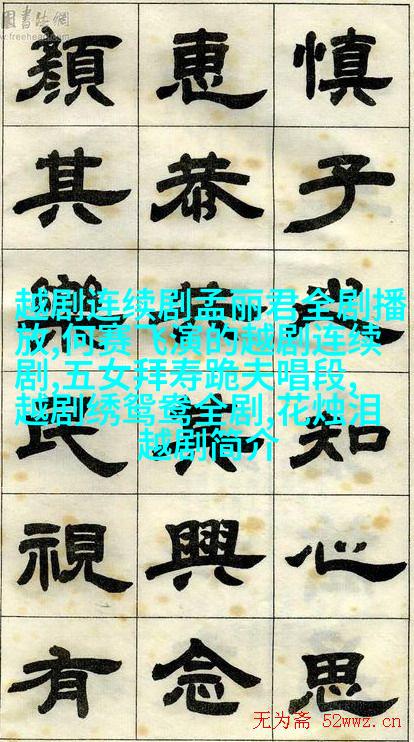 国書法網
慎子知心思
惠恭興念
顏其樂民視有
越剧连续剧孟丽君全剧播
放,何赛飞演的越剧连续
剧,五女拜寿跪夫唱段,
越剧绣鸳鸯全剧,花烛泪
越剧简介
无为斋 52wwz.cn